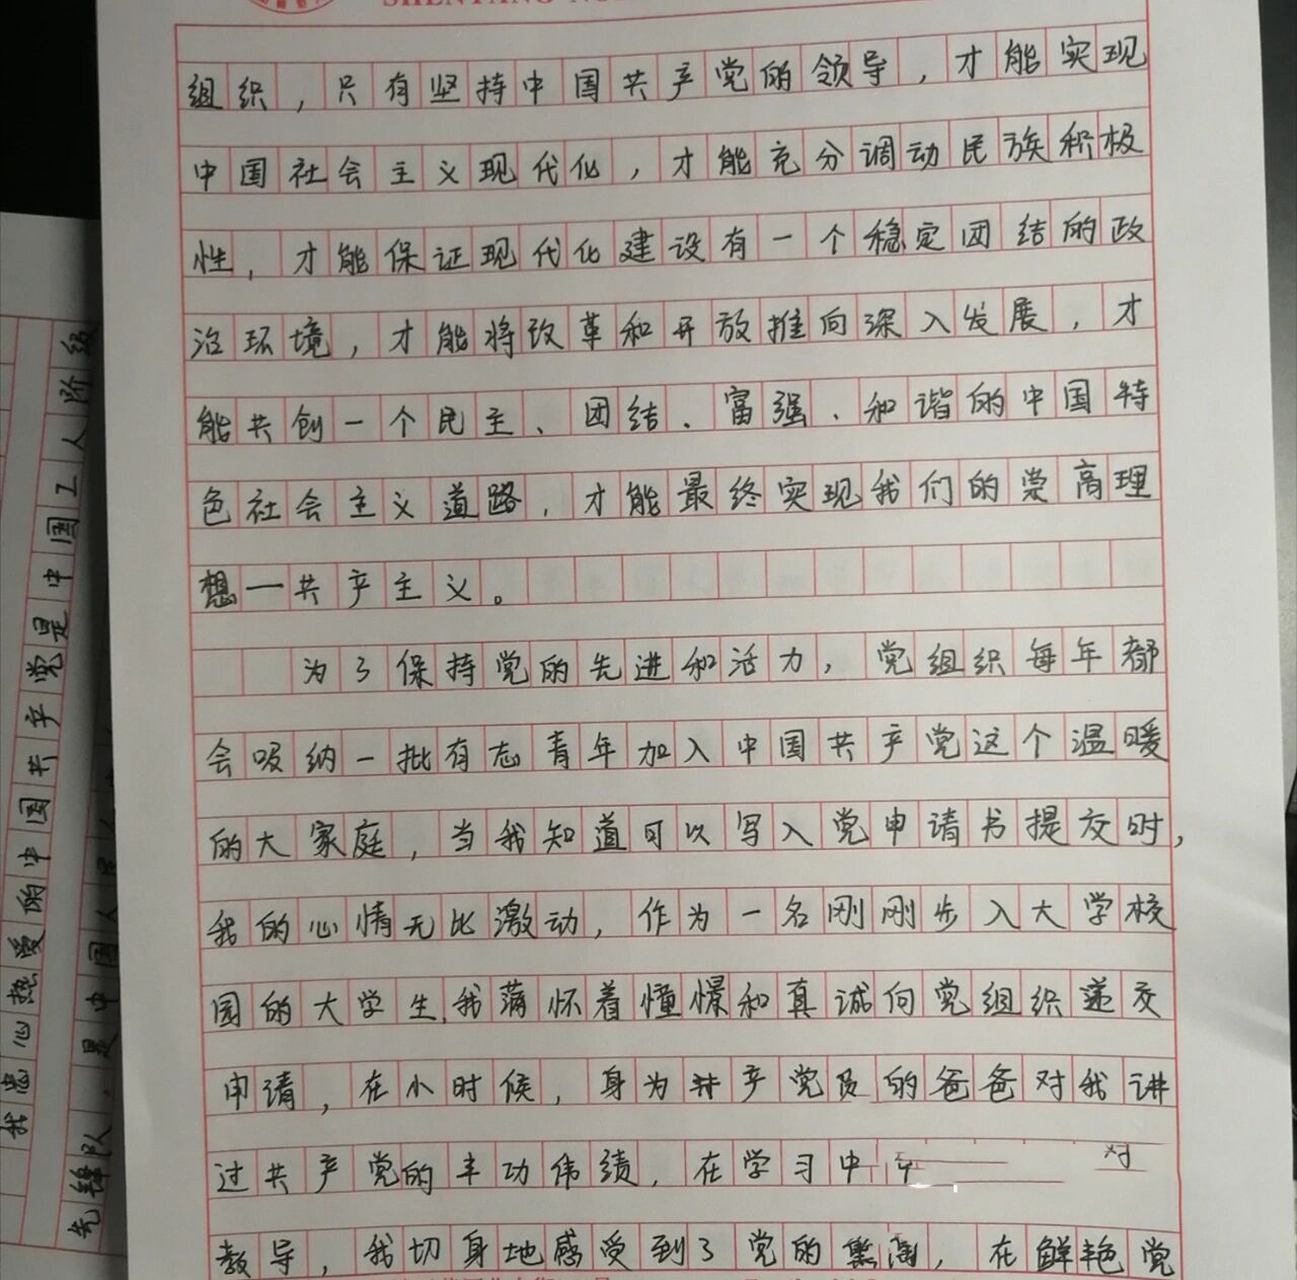 SHENYANG
组织，只有坚持中国共产党的领导，才能实现
中国社会主义现代化，才能充分调动民族积极
性，才能保证现代化建设有一个稳定团结的政
治环境，才能将改革和开放推向深入发展，才
能共创一个民主、团结、富强、和谐的中国特
色社会主义道路，才能最终实现我们的崇高理
想一共产主义。
为了保持党的先进和活力，党组织每年都
会吸纳一批有志青年加入中国共产党这个温暖
的大家庭，当我知道可以写入党申请书提交时，
我的心情无比激动，作为一名刚刚步入大学校
园的大学生，我满怀着憧憬和真诚向党组织递交
申请，在小时候，身为共产党员的爸爸对我讲
过共产党的丰功伟绩，在学习中 对
教导，我切身地感受到了党的熏陶，在鲜艳党
我忠心热爱的中国共产党是中国工人阶级
先锋队，是中国人